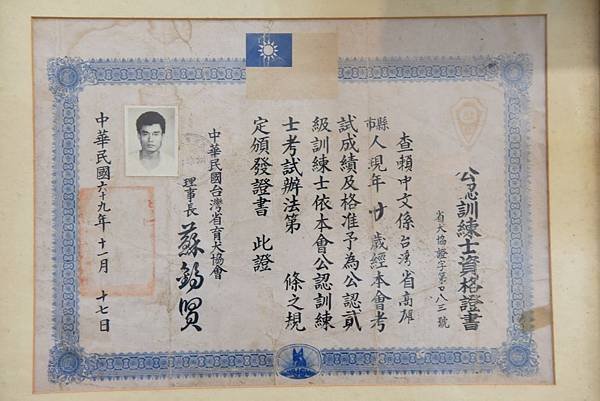 公認訓練士資格證書
省犬協證字第廿八三號
查賴中文係台灣省高雄
縣市人現年廿歲經本會考
試成績及格准予為公認貳
級訓練士依本會公認訓練
士考試辦法第　條之規
定頒發證書　此證
中華民國台灣省育犬協會
理事長
中華民國六十九年十一月十七日